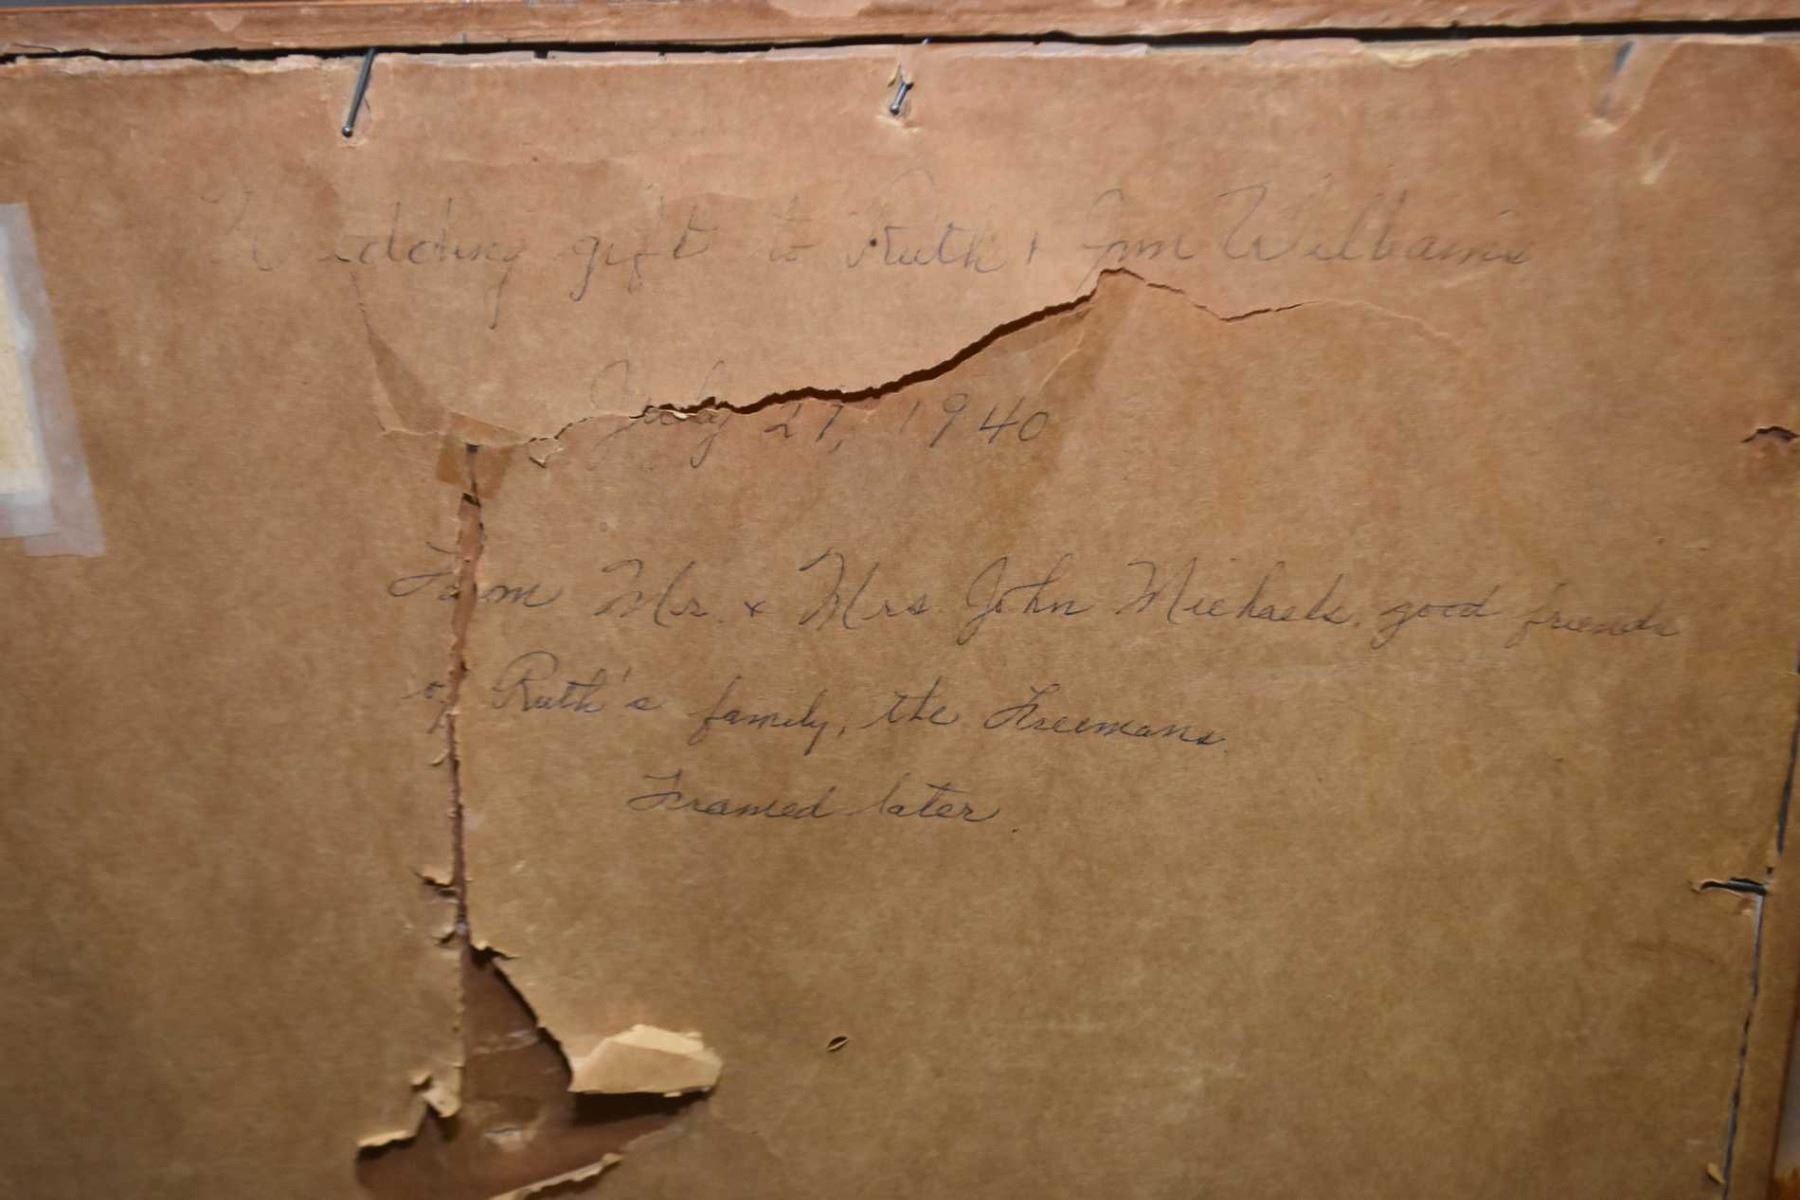 Wedding gift to Ruth + Jim Williams
July 27, 1940
From Mr. + Mrs. John Michaels, good friends
of Ruth's family, the Freemans.
Framed later.